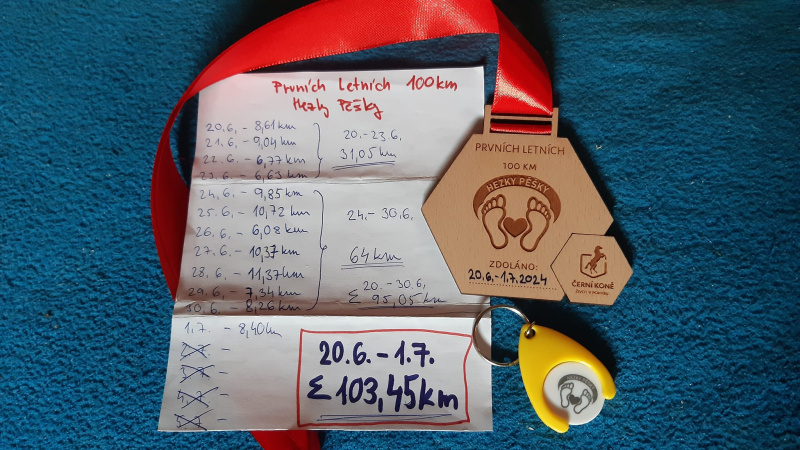 Prvních Letních 100km
Hezky Pěšky
20.6. - 8,61 km
21.6. - 9,04 km
22.6. - 6,77 km
23.6. - 6,63 km
20.-23.6.
31,05 km
24.6. - 9,85 km
25.6. - 10,72 km
26.6. - 6,08 km
27.6. - 10,37 km
28.6. - 11,37 km
29.6. - 7,34 km
30.6. - 8,26 km
24.-30.6.
64 km
20.-30.6.
Σ 95,05 km
1.7. - 8,40 km
20.6.-1.7.
Σ 103,45 km
PRVNÍCH LETNÍCH
100 KM
HEZKY PĚŠKY
ZDOLÁNO:
20.6.-1.7.2024
ČERNÍ KONĚ
HEZKY PĚŠKY